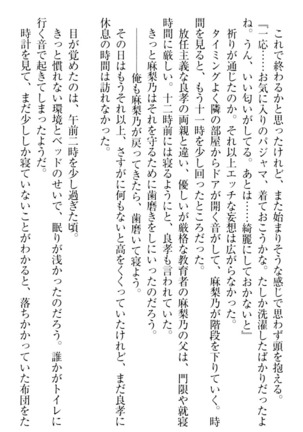 これで終わるかと思ったけれど、また始まりそうな感じで思わず頭を抱える。
『一応……お気に入りのパジャマ、着ておこうかな。たしか洗濯したばかりだったよ
ね。うん、いい匂いがしてる。あとは……綺麗にしておかないと』
祈りが通じたのか。それ以上エッチな妄想は広がらなかった。
タイミングよく隣の部屋からドアが開く音がして、麻梨乃が階段を下りていく。時
間を見ると、もう十一時を少し回ったところだった。
放任主義な良孝の両親と違い、優しいが厳格な教育者の麻梨乃の父は、門限や就寝
時間に厳しい。十二時前には寝るようにと、良孝も言われていた。
――俺も麻梨乃が戻ってきたら、歯磨いて寝よう。
きっと麻梨乃はそれを守るために歯磨きをしにいったのだろう。
その日はもうそれ以上、さすがに何もないと高をくくっていたけれど、まだ良孝に
休息の時間は訪れなかった。
目が覚めたのは、午前二時を少し過ぎた頃。
きっと慣れない環境とベッドのせいで、眠りが浅かったのだろう。誰かがトイレに
行く音で起きてしまったようだ。
時計を見て、まだ少ししか寝ていないことがわかると、落ちかかっていた布団をた